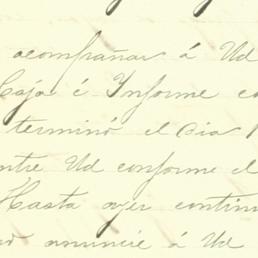 acompañar á Ud
Caja é Informe
terminó el dia
entre Ud conforme el
Hasta ayer
anuncié á Ud